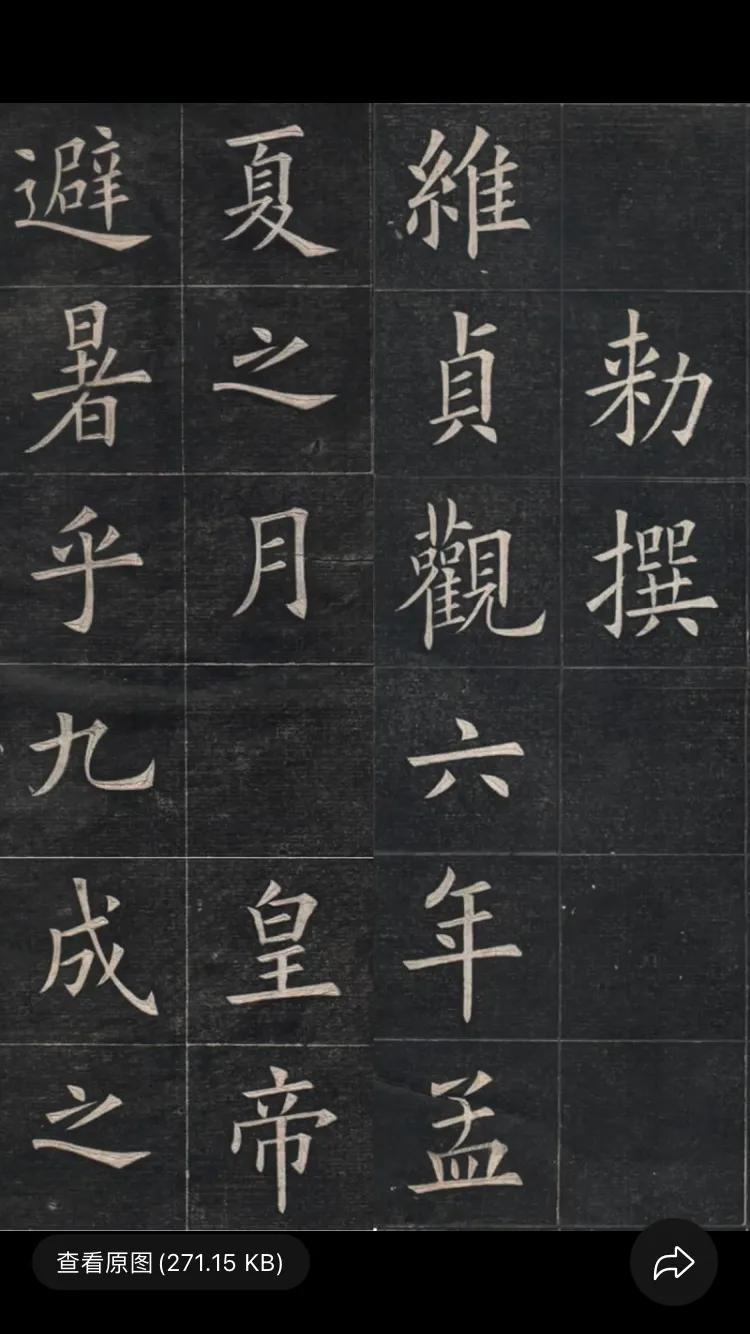 勑撰
維貞觀六年孟
夏之月皇帝
避暑乎九成之
查看原图(271.15 KB)